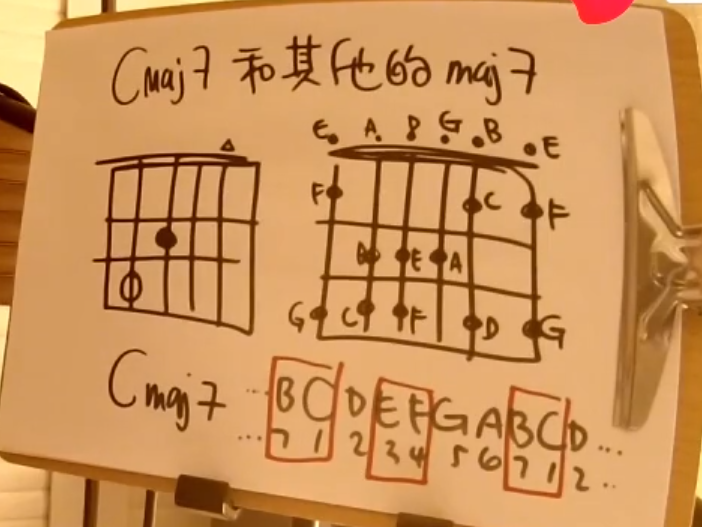 Cmaj7 和其他的 maj7
E A B G B E
F C F
B E A
G C F D G
Cmaj7 ... B C D E F G A B C D ...
... 7 1 2 3 4 5 6 7 1 2 ..